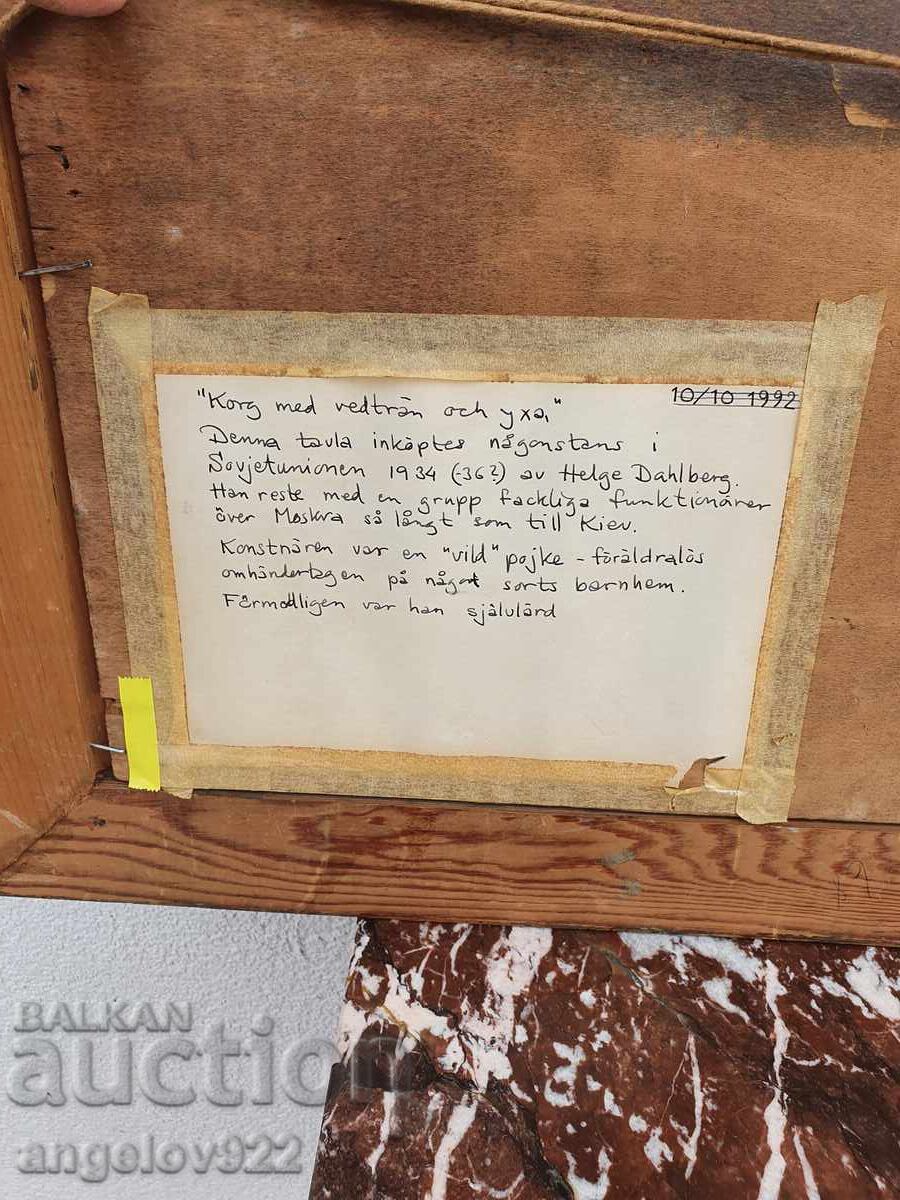 10/10 1992
"Korg med vedträn och yxa"
Denna tavla inköptes någonstans i
Sovjetunionen 1934 (-36?) av Helge Dahlberg.
Han reste med en grupp fackliga funktionärer
över Moskva så långt som till Kiev.
Konstnären var en "vild" pojke - föräldralös
omhändertagen på något sorts barnhem.
Förmodligen var han självlärd
BALKAN
auction
angelov922